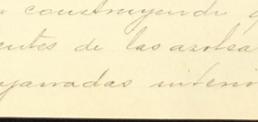 construyendo
entes de las azotea
yarradas interio